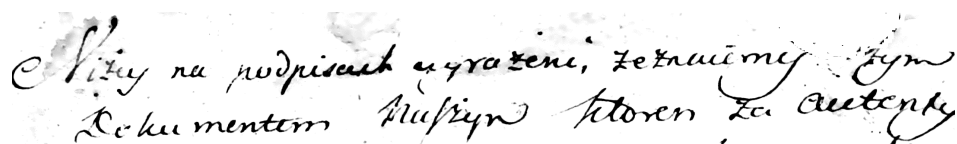 Niżey na podpisach wyrażeni, zeznaiemy tym
Dokumentem Naszym ktoren za autenty